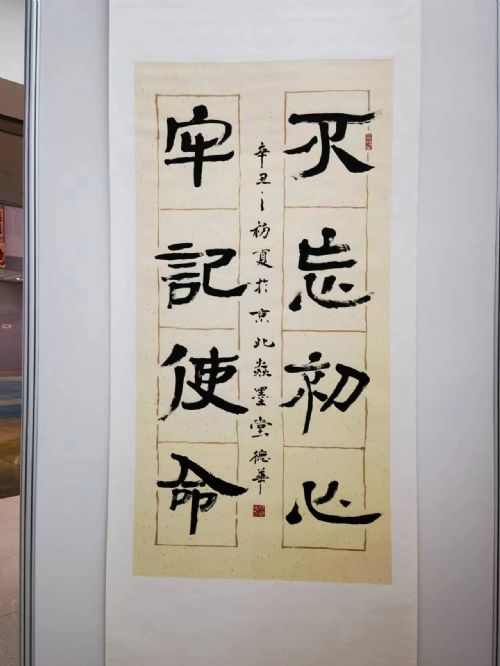 不忘初心
牢記使命
辛丑之初夏於京北淼墨堂德華